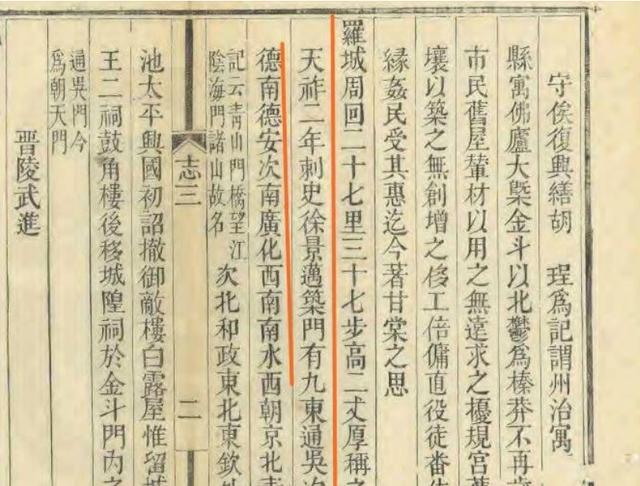 守俟復興繕胡 珵爲記謂州治寓
縣寓佛廬大槩金斗以北鬱爲榛莽不再
市民舊屋輦材以用之無遠求之擾規宮
壤以築之無創增之侈工倍傭直役徒番
緣姦民受其惠迄今著甘棠之思
羅城周回二十七里三十七步高二丈厚稱之
天祚二年刺史徐景邁築門有九東通吳次
德南德安次南廣化西南南水西朝京北青
記云青山門橋望江
陰海門諸山故名
次北和政東北東欽
志三
二
池太平興國初詔撤御敵樓白露屋惟留城
王二祠鼓角樓後移城隍祠於金斗門內之
通吳門今
爲朝天門
晋陵武進